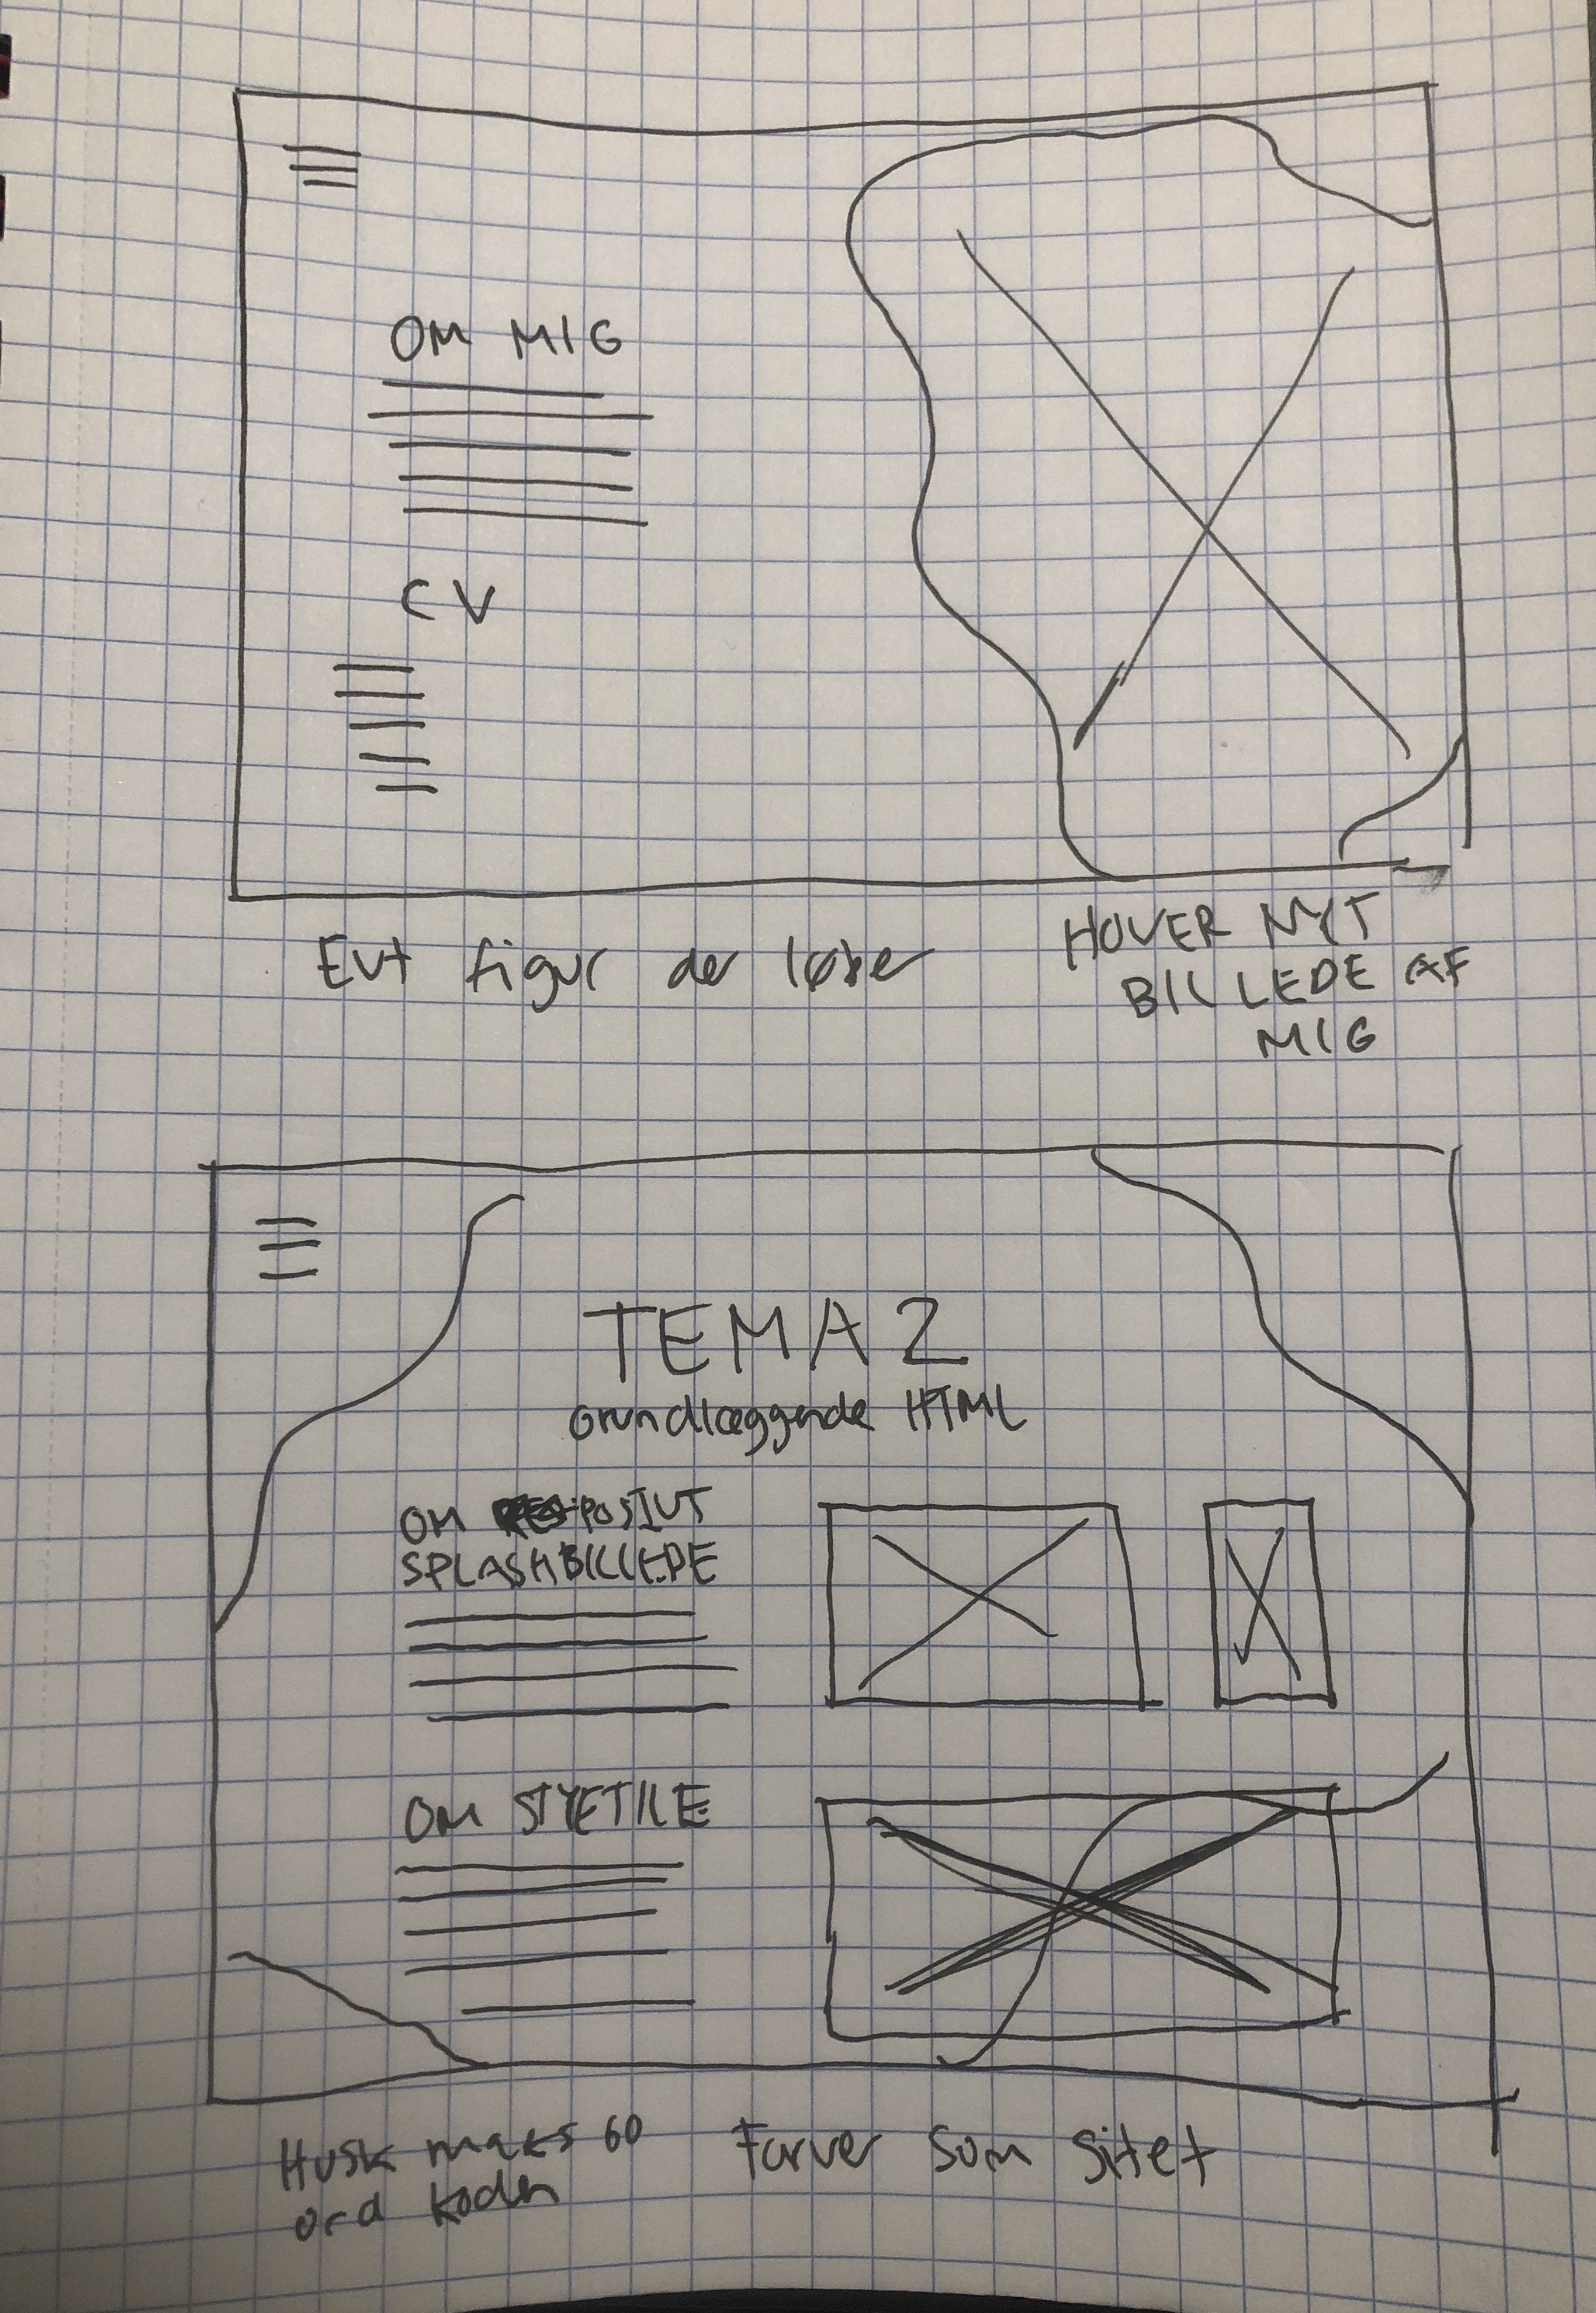 OM MIG
CV
Evt figur der løber
HOVER NYT
BILLEDE AF
MIG
TEMA 2
Grundlæggende HTML
OM
SPLASHBILLEDE
OM STYETILE
Husk maks 60
ord
Farver som sitet